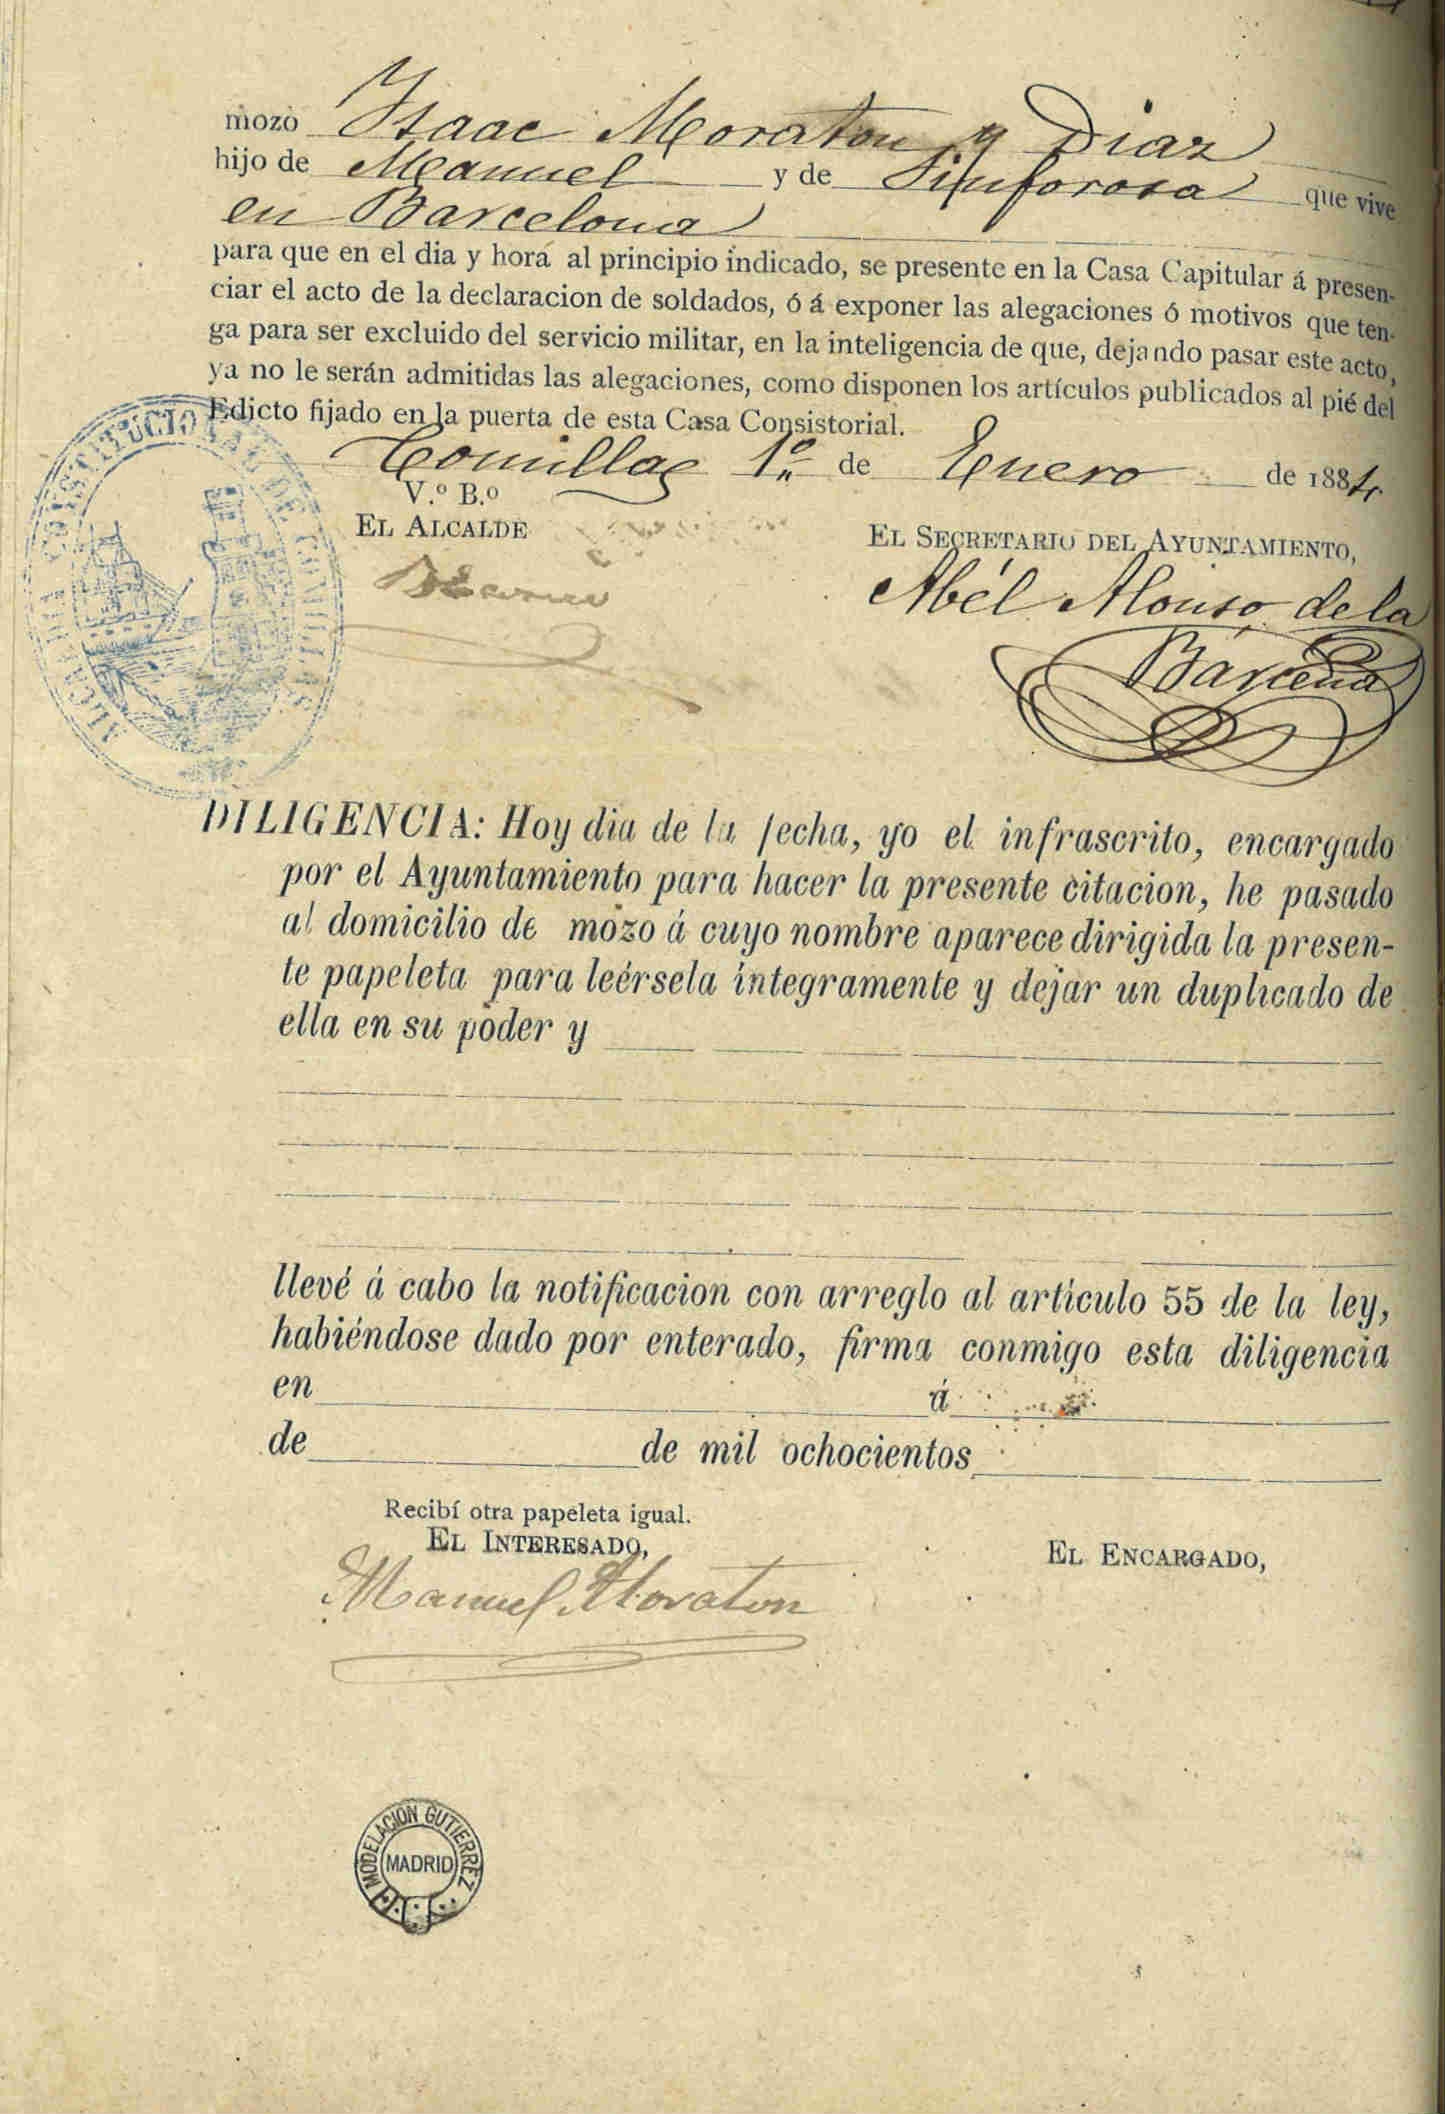 mozo Isaac Moraton y Diaz
hijo de Manuel y de Sinforosa que vive
en Barcelona
para que en el dia y hora al principio indicado, se presente en la Casa Capitular á presen-
ciar el acto de la declaracion de soldados, ó á exponer las alegaciones ó motivos que ten-
ga para ser excluido del servicio militar, en la inteligencia de que, dejando pasar este acto,
ya no le serán admitidas las alegaciones, como disponen los artículos publicados al pié del
Edicto fijado en la puerta de esta Casa Consistorial.
Comillas 1.º de Enero de 1884
V.º B.º
EL ALCALDE
EL SECRETARIO DEL AYUNTAMIENTO,
Abél Alonso de la
Bárcena
ALCALDIA CONSTITUCIONAL DE COMILLAS
DILIGENCIA: Hoy dia de la fecha, yo el infrascrito, encargado
por el Ayuntamiento para hacer la presente citacion, he pasado
al domicilio de mozo á cuyo nombre aparece dirigida la presen-
te papeleta para leérsela íntegramente y dejar un duplicado de
ella en su poder y
llevé á cabo la notificacion con arreglo al artículo 55 de la ley,
habiéndose dado por enterado, firma conmigo esta diligencia
en á
de de mil ochocientos
Recibí otra papeleta igual.
EL INTERESADO,
EL ENCARGADO,
Manuel Moraton
MODELACION GUTIERREZ
MADRID